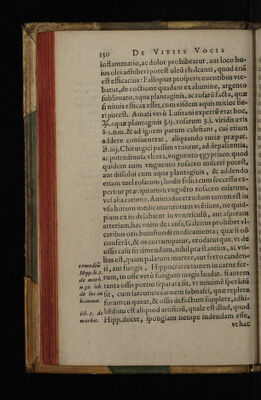 130 DE VITIIS VOCIS
inflammatio, ac dolor prohibeatur, aut loco hu-
ius olei adhiberi potest oleũ chalcanti, quod etiã
est efficacius: Fallopius prosperis euentibus vte-
batur, decoctione quadam ex alumine, argento
sublimato, aqua plantaginis, ac rosarũ facta, quæ
si nimis efficax esset, cum eisdem aquis mitior fie-
ri potest. Amati verò Lusitani expertũ erat hoc,
aquæ plantaginis rosarum viridis æris
& ad ignem parum calefiant, cui etiam
addere consueuerat, aliquando tutiæ præpar.
Chirurgici passim vtuntur, ad depascentia,
ac putredinosa vlcera, vnguento egyptiaco, quod
quidem cum vnguento rosaceo misceri potest,
aut dissolui cum aqua plantaginis, & addendo
etiam mel rosarum; hodie frusta cum successu ex-
peri­tur præcipitatum vnguẽto rosaceo mistum,
vel alia ratione. Animaduertendum tamen est in
vsu horum medicamentorum vtẽtium, ne quip-
piam ex in delabatur in ventriculũ, aut asperam
arteriam, hac enim de causa, Galenus prohibet vl-
ceribus oris huiusmodi medicamenta; quæ si nõ
conferãt, & os corrumpatur, erodaturque, vt de
ossis casu sit timendum, nihil præstantius, ac vti-
lius est, quam palatum inurere, aut ferro canden-
ti, aut fungis, Hippocrates tamen in carne fer-
rum, in osse verò fungum magis laudat. si autem
tanta ossis portio separata sit, vt minimè sperãdũ
sit, eum latorica carnem subnasci, quæ replere
foramen queat, & ossis defectum supplere, adhi-
bẽdona est aliquod artificiũ, quale est illud, quod
Hipp. docet, spongiam nempe indendam esse,
vt hac
remediũ
Hipp. li. 2.
de morb.
de loc. in
homine.
lib. 2. de
morbis.